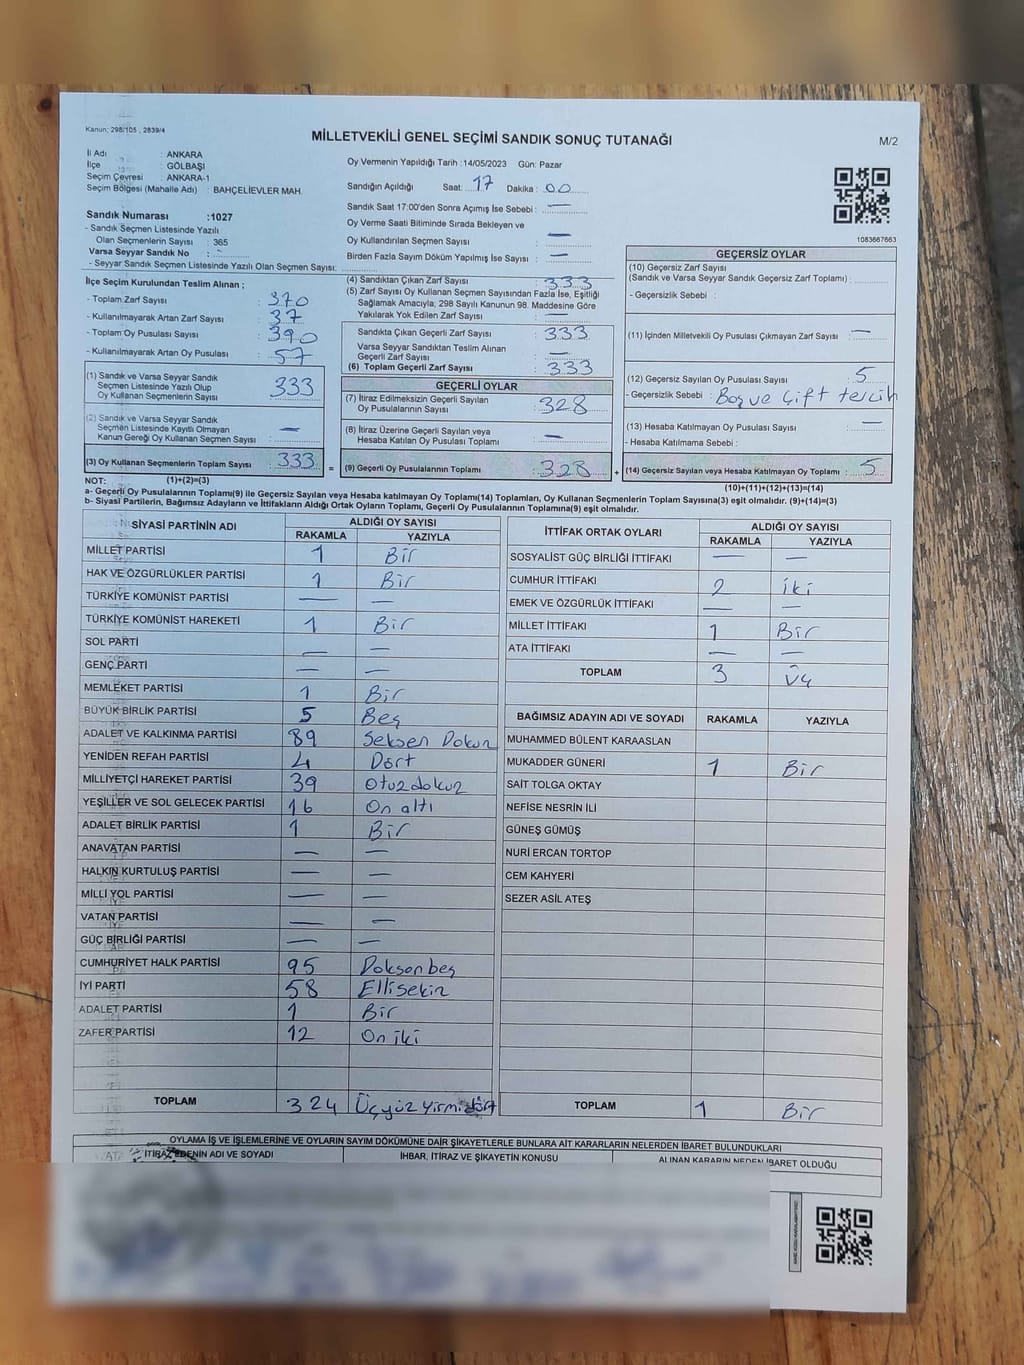 Kanun; 298/105 , 2839/4
MİLLETVEKİLİ GENEL SEÇİMİ SANDIK SONUÇ TUTANAĞI
M/2
İl Adı : ANKARA
İlçe : GÖLBAŞI
Seçim Çevresi : ANKARA-1
Seçim Bölgesi (Mahalle Adı) : BAHÇELİEVLER MAH.
Sandık Numarası :1027
- Sandık Seçmen Listesinde Yazılı
Olan Seçmenlerin Sayısı : 365
Varsa Seyyar Sandık No : -
- Seyyar Sandık Seçmen Listesinde Yazılı Olan Seçmen Sayısı:
Oy Vermenin Yapıldığı Tarih :14/05/2023 Gün: Pazar
Sandığın Açıldığı Saat: 17 Dakika : 00
Sandık Saat 17:00'den Sonra Açımış İse Sebebi : —
Oy Verme Saati Bitiminde Sırada Bekleyen ve
Oy Kullandırılan Seçmen Sayısı : —
Birden Fazla Sayım Döküm Yapılmış İse Sayısı : —
1083667663
İlçe Seçim Kurulundan Teslim Alınan ;
- Toplam Zarf Sayısı : 370
- Kullanılmayarak Artan Zarf Sayısı : 37
- Toplam Oy Pusulası Sayısı : 390
- Kullanılmayarak Artan Oy Pusulası : 57
(1) Sandık ve Varsa Seyyar Sandık
Seçmen Listesinde Yazılı Olup
Oy Kullanan Seçmenlerin Sayısı : 333
(2) Sandık ve Varsa Seyyar Sandık
Seçmen Listesinde Kayıtlı Olmayan
Kanun Gereği Oy Kullanan Seçmen Sayısı : —
(3) Oy Kullanan Seçmenlerin Toplam Sayısı : 333 =
(4) Sandıktan Çıkan Zarf Sayısı : 333
(5) Zarf Sayısı Oy Kullanan Seçmen Sayısından Fazla İse, Eşitliği
Sağlamak Amacıyla, 298 Sayılı Kanunun 98. Maddesine Göre
Yakılarak Yok Edilen Zarf Sayısı : —
Sandıkta Çıkan Geçerli Zarf Sayısı : 333
Varsa Seyyar Sandıktan Teslim Alınan
Geçerli Zarf Sayısı : —
(6) Toplam Geçerli Zarf Sayısı : 333
GEÇERLİ OYLAR
(7) İtiraz Edilmeksizin Geçerli Sayılan
Oy Pusulalarının Sayısı : 328
(8) İtiraz Üzerine Geçerli Sayılan veya
Hesaba Katılan Oy Pusulası Toplamı : —
(9) Geçerli Oy Pusulalarının Toplamı : 328 +
GEÇERSİZ OYLAR
(10) Geçersiz Zarf Sayısı
(Sandık ve Varsa Seyyar Sandık Geçersiz Zarf Toplamı) :
- Geçersizlik Sebebi :
(11) İçinden Milletvekili Oy Pusulası Çıkmayan Zarf Sayısı : —
(12) Geçersiz Sayılan Oy Pusulası Sayısı : 5
- Geçersizlik Sebebi : Boş ve Çift tercih
(13) Hesaba Katılmayan Oy Pusulası Sayısı : —
- Hesaba Katılmama Sebebi :
(14) Geçersiz Sayılan veya Hesaba Katılmayan Oy Toplamı : 5
NOT: (1)+(2)=(3)
(10)+(11)+(12)+(13)=(14)
a- Geçerli Oy Pusulalarının Toplamı(9) ile Geçersiz Sayılan veya Hesaba katılmayan Oy Toplamı(14) Toplamları, Oy Kullanan Seçmenlerin Toplam Sayısına(3) eşit olmalıdır. (9)+(14)=(3)
b- Siyasi Partilerin, Bağımsız Adayların ve İttifakların Aldığı Ortak Oyların Toplamı, Geçerli Oy Pusulalarının Toplamına(9) eşit olmalıdır.
SİYASİ PARTİNİN ADI ALDIĞI OY SAYISI
RAKAMLA YAZIYLA
MİLLET PARTİSİ 1 Bir
HAK VE ÖZGÜRLÜKLER PARTİSİ 1 Bir
TÜRKİYE KOMÜNİST PARTİSİ — —
TÜRKİYE KOMÜNİST HAREKETİ 1 Bir
SOL PARTİ — —
GENÇ PARTİ — —
MEMLEKET PARTİSİ 1 Bir
BÜYÜK BİRLİK PARTİSİ 5 Beş
ADALET VE KALKINMA PARTİSİ 89 Seksen Dokuz
YENİDEN REFAH PARTİSİ 4 Dört
MİLLİYETÇİ HAREKET PARTİSİ 39 Otuzdokuz
YEŞİLLER VE SOL GELECEK PARTİSİ 16 On altı
ADALET BİRLİK PARTİSİ 1 Bir
ANAVATAN PARTİSİ — —
HALKIN KURTULUŞ PARTİSİ — —
MİLLİ YOL PARTİSİ — —
VATAN PARTİSİ — —
GÜÇ BİRLİĞİ PARTİSİ — —
CUMHURİYET HALK PARTİSİ 95 Doksanbeş
İYİ PARTİ 58 Ellisekiz
ADALET PARTİSİ 1 Bir
ZAFER PARTİSİ 12 On iki
TOPLAM 324 Üçyüz yirmi dört
İTTİFAK ORTAK OYLARI ALDIĞI OY SAYISI
RAKAMLA YAZIYLA
SOSYALİST GÜÇ BİRLİĞİ İTTİFAKI — —
CUMHUR İTTİFAKI 2 iki
EMEK VE ÖZGÜRLÜK İTTİFAKI — —
MİLLET İTTİFAKI 1 Bir
ATA İTTİFAKI — —
TOPLAM 3 Üç
BAĞIMSIZ ADAYIN ADI VE SOYADI RAKAMLA YAZIYLA
MUHAMMED BÜLENT KARAASLAN
MUKADDER GÜNERİ 1 Bir
SAİT TOLGA OKTAY
NEFİSE NESRİN İLİ
GÜNEŞ GÜMÜŞ
NURİ ERCAN TORTOP
CEM KAHYERİ
SEZER ASİL ATEŞ
TOPLAM 1 Bir
OYLAMA İŞ VE İŞLEMLERİNE VE OYLARIN SAYIM DÖKÜMÜNE DAİR ŞİKAYETLERLE BUNLARA AİT KARARLARIN NELERDEN İBARET BULUNDUKLARI
İTİRAZ EDENİN ADI VE SOYADI İHBAR, İTİRAZ VE ŞİKAYETİN KONUSU ALINAN KARARIN NEDEN İBARET OLDUĞU